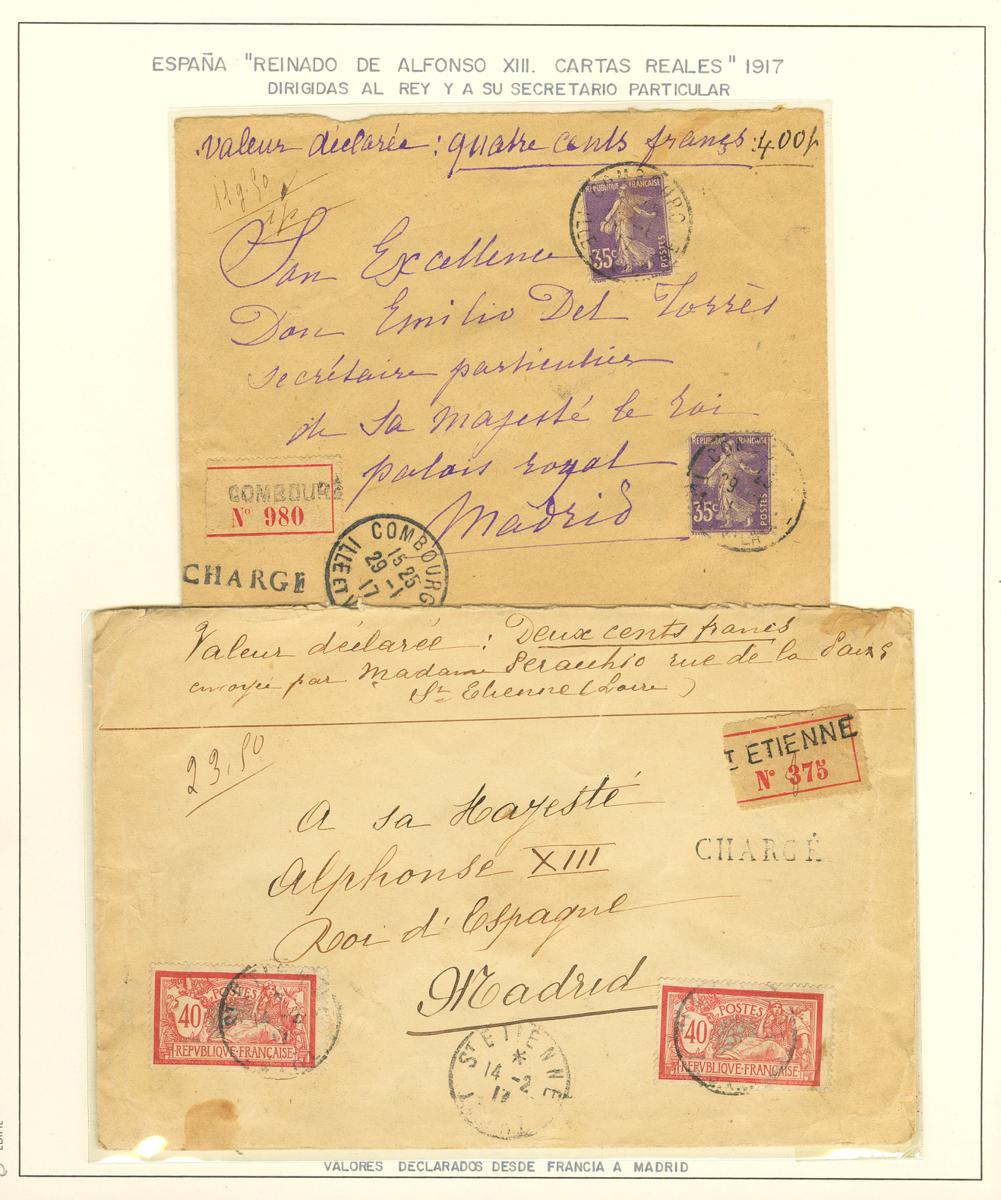 ESPAÑA "REINADO DE ALFONSO XIII. CARTAS REALES" 1917
DIRIGIDAS AL REY Y A SU SECRETARIO PARTICULAR
Valeur déclarée : quatre cents francs : 400f
11g 50
REPUBLIQUE FRANÇAISE
35c POSTES
Son Excellence
Don Emilio Del Torrès
secrétaire particulier
de Sa Majesté le roi
palais royal
Madrid
REPUBLIQUE FRANÇAISE
35c POSTES
COMBOURG
N° 980
CHARGÉ
COMBOURG
15 25
29 -1
17
ILLE ET
Valeur déclarée : Deux cents francs
envoyée par Madame Peracchio rue de la Paix 5
St Etienne (Loire)
T ETIENNE
N° 375
23,50
A sa Majesté
Alphonse XIII
Roi d'Espagne
Madrid
CHARGÉ
POSTES
40
REPVBLIQUE FRANÇAISE
POSTES
40
REPVBLIQUE FRANÇAISE
ST ETIENNE
*
14 -2
17
VALORES DECLARADOS DESDE FRANCIA A MADRID